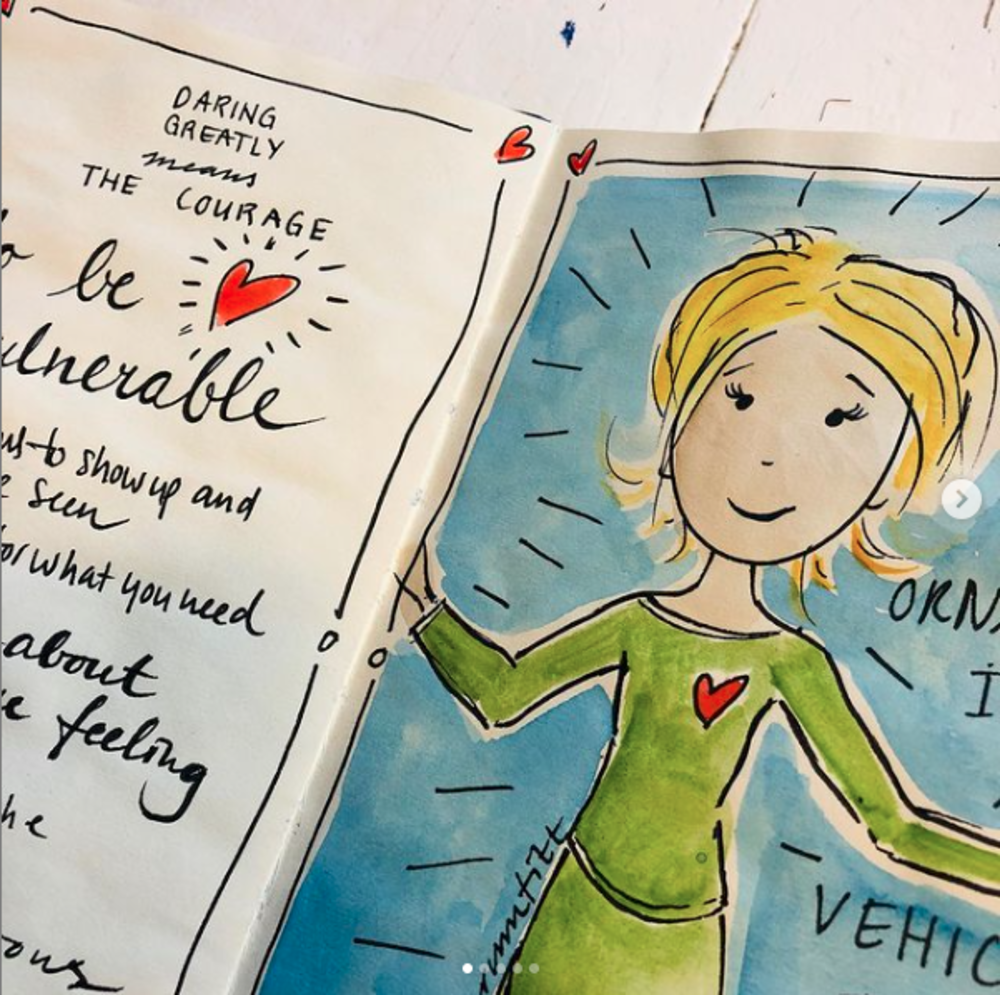 DARING
GREATLY
means
THE COURAGE
be
ulnerable
us to show up and
seen
or what you need
about
feeling
he
ous
ORN
I
VEHIC